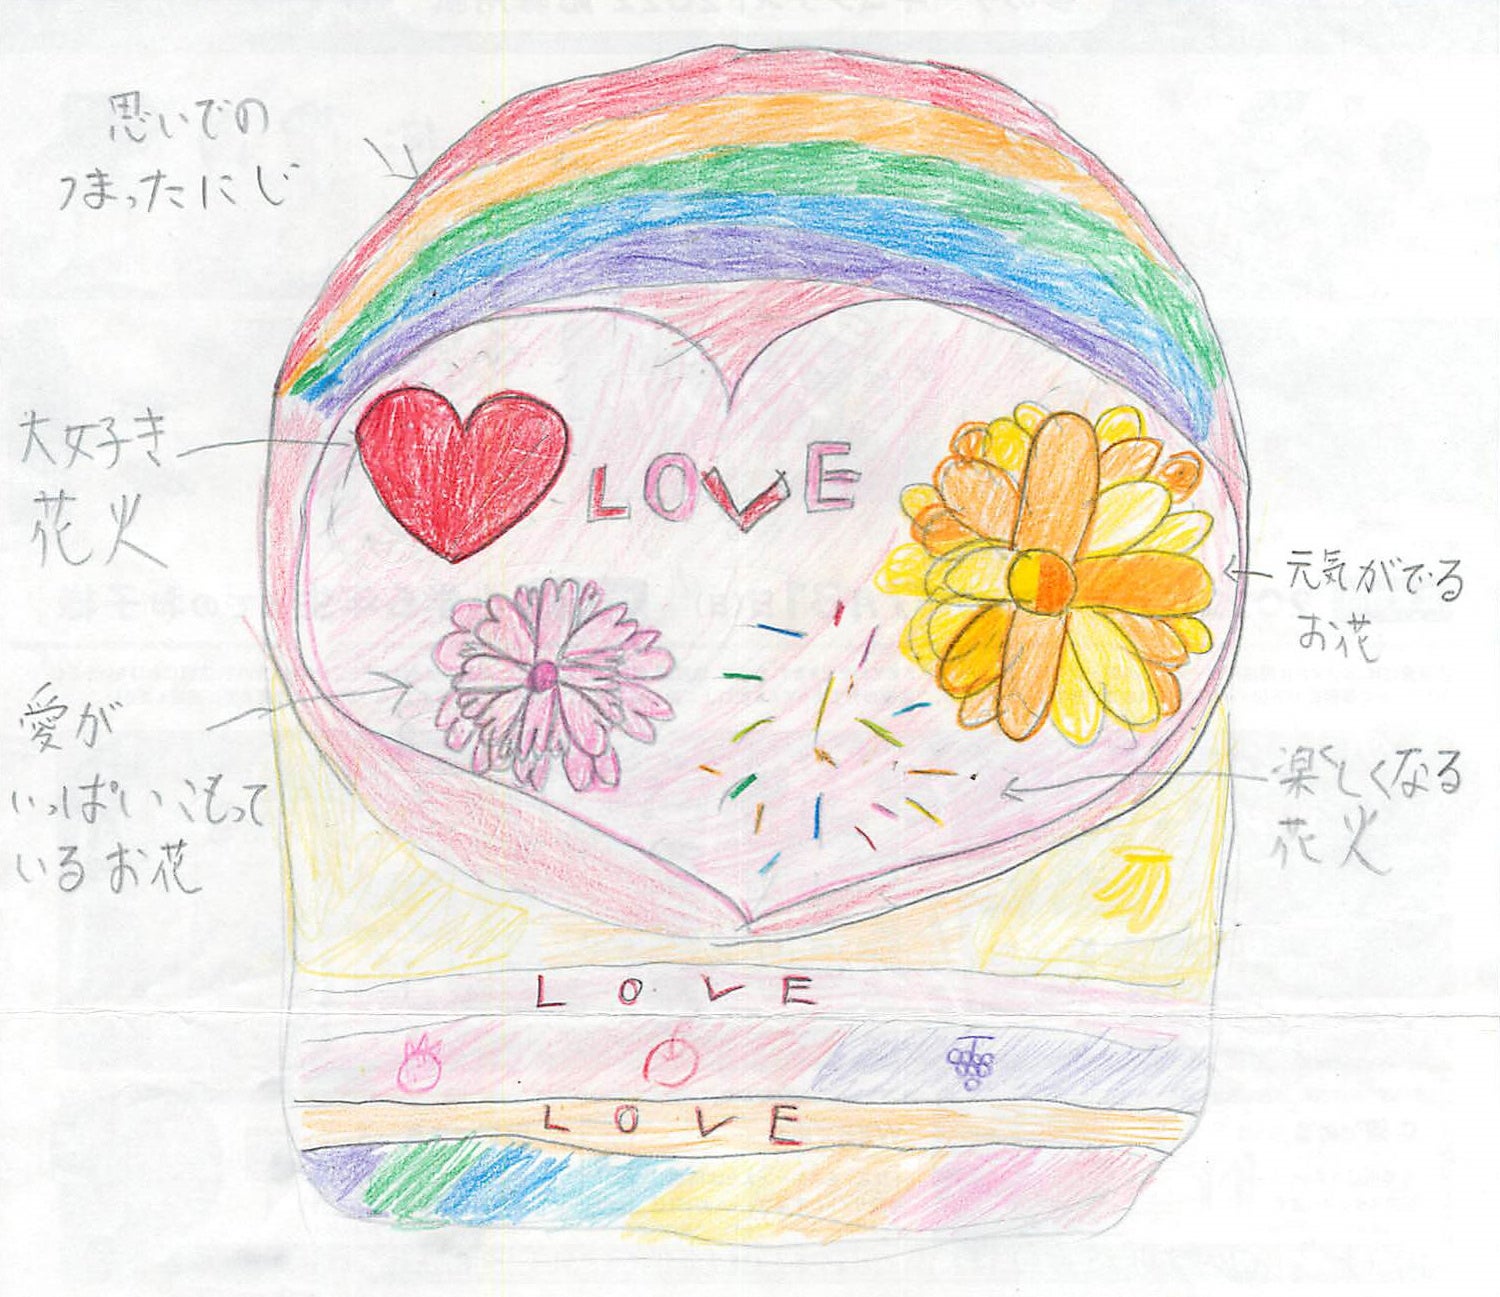 思いでの
つまったにじ
大好き
花火
LOVE
元気がでる
お花
愛が
いっぱいこもって
いるお花
楽しくなる
花火
LOVE
LOVE